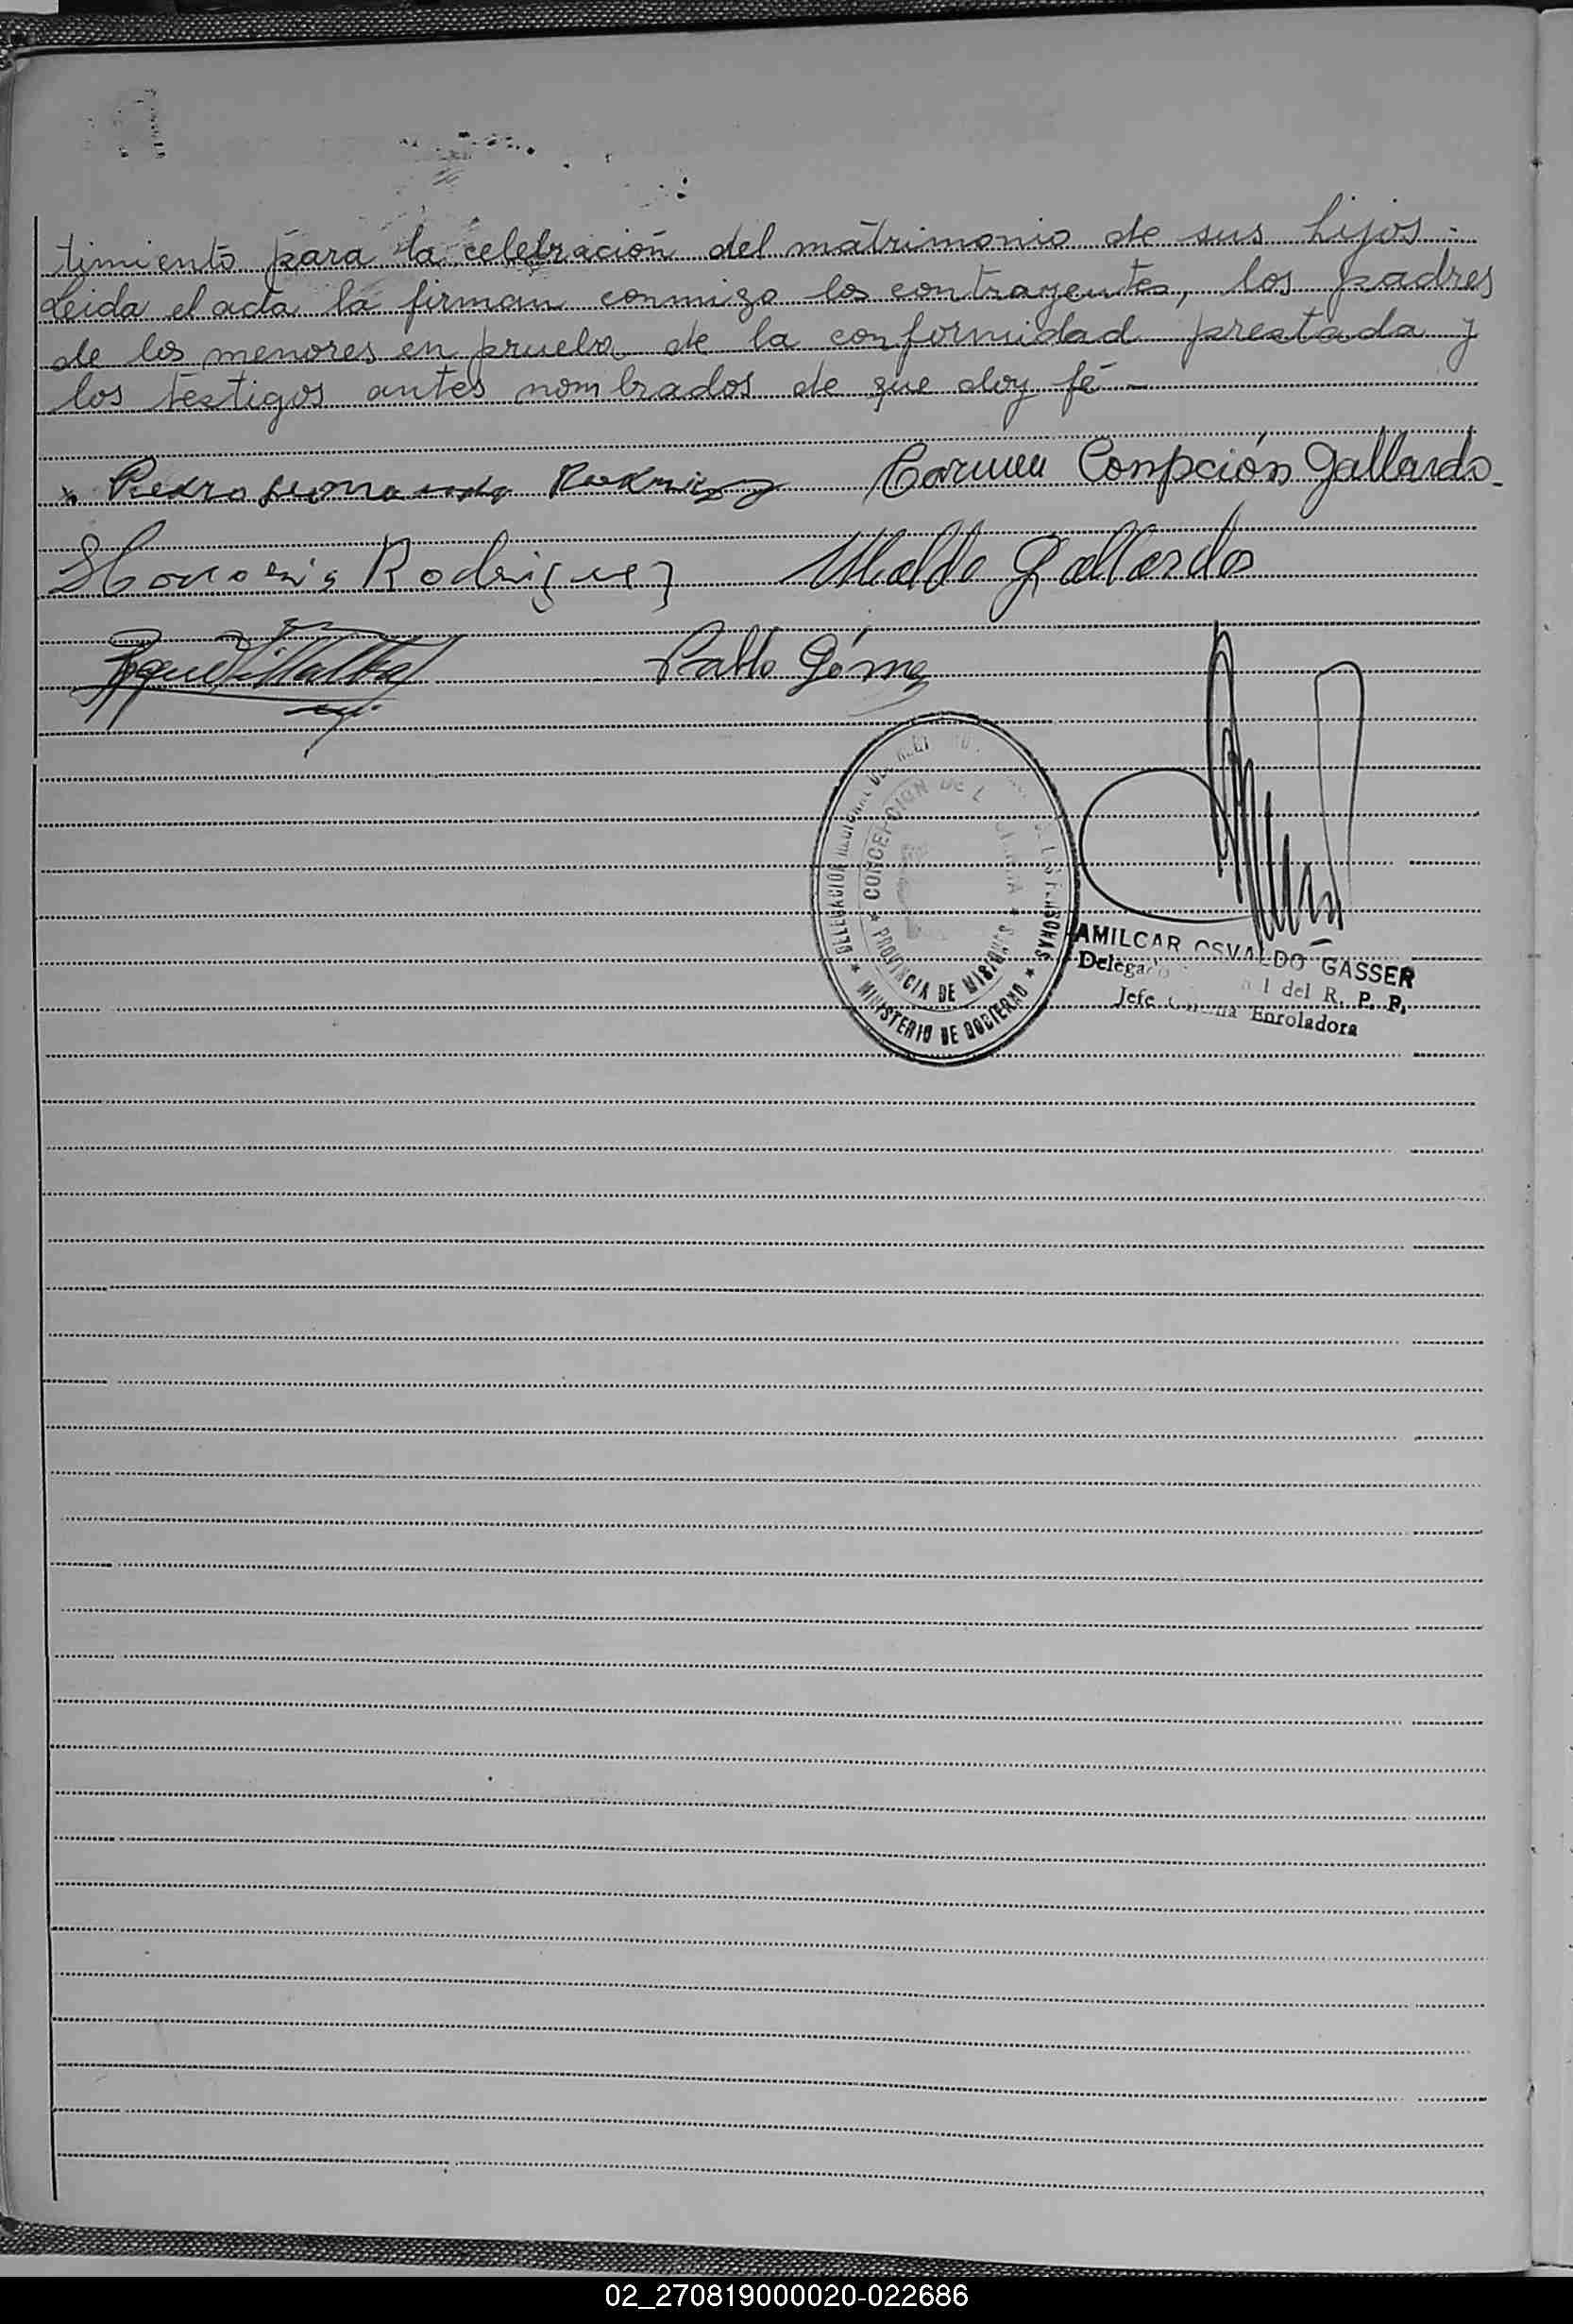 timiento para la celebración del matrimonio de sus hijos.-
Leida el acta la firman conmigo los contrayentes, los padres
de los menores en prueba de la conformidad prestada y
los testigos antes nombrados de que doy fé-
Pedro Rodriguez Carmen Conpción Gallardo
Honorio Rodriguez Ubaldo Gallardo
Roque Villalba Pablo Gómez
DELEGACION DE LAS PERSONAS
CONCEPCION DE L
PROVINCIA DE MISIONES
MINISTERIO DE GOBIERNO
AMILCAR OSVALDO GASSER
Delegado del R. P. P.
Jefe Enroladora
02_270819000020-022686